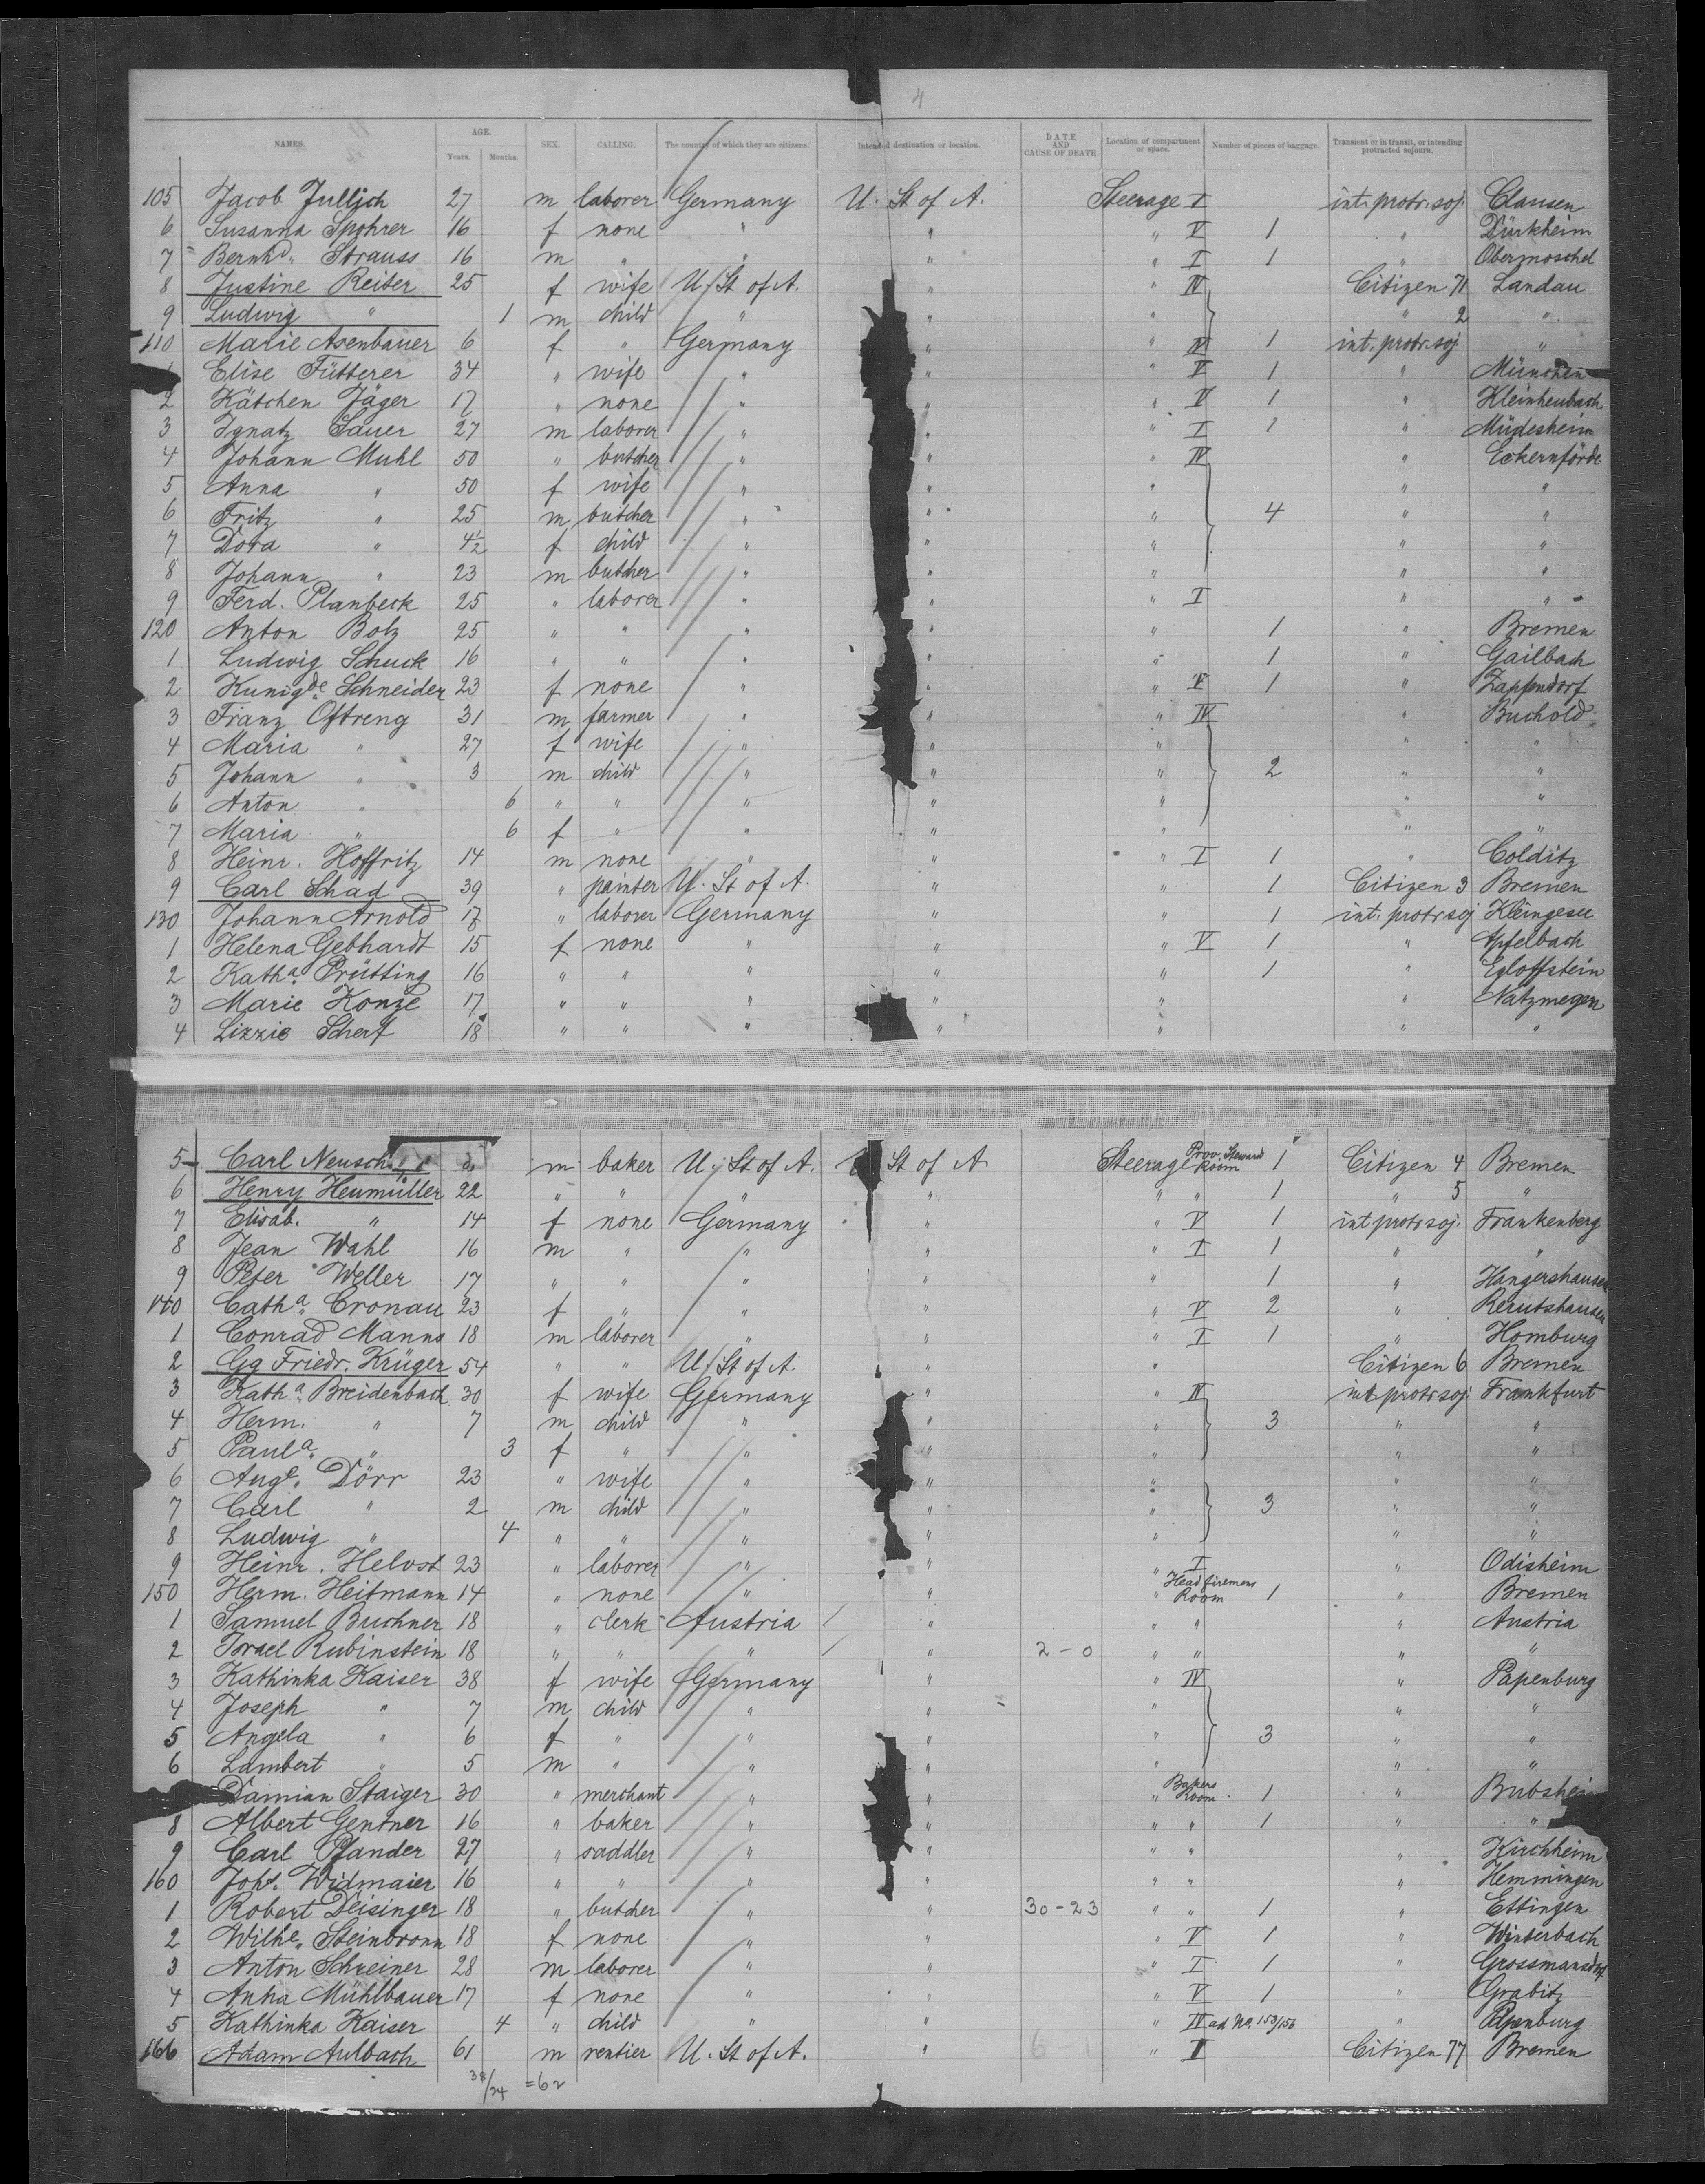 4
NAMES. AGE. Years. Months. SEX. CALLING. The country of which they are citizens. Intended destination or location. DATE AND CAUSE OF DEATH. Location of compartment or space. Number of pieces of baggage. Transient or in transit, or intending protracted sojourn.
105 Jacob Jullich 27 m laborer Germany U. St of A. Steerage I int. protr. soj. Clausen
6 Susanna Spohrer 16 f none " " " V 1 " Dürkheim
7 Bernhd. Strauss 16 m " " " " I 1 " Obermoschel
8 Justine Reiter 25 f wife U. St of A. " " IV Citizen 71 Landau
9 Ludwig " 1 m child " " " " 2 "
110 Marie Asenbauer 6 f " Germany " " IV 1 int. protr. soj "
Elise Fütterer 34 " wife " " " V 1 " München
2 Kätchen Jäger 17 " none " " " V 1 " Kleinheubach
3 Ignatz Sauer 27 m laborer " " " I 1 " Müdesheim
4 Johann Muhl 50 " butcher " " " IV " Eckernförde
5 Anna " 50 f wife " " " " "
6 Fritz " 25 m butcher " " " 4 " "
7 Dora " 4½ f child " " " " "
8 Johann " 23 m butcher " " " " "
9 Ferd. Planbeck 25 " laborer " " " I " "
120 Anton Botz 25 " " " " " 1 " Bremen
1 Ludwig Schuck 16 " " " " " 1 " Gailbach
2 Kunigde. Schneider 23 f none " " " V 1 " Zapfendorf
3 Franz Oftreng 31 m farmer " " " IV " Buchold
4 Maria " 27 f wife " " " " "
5 Johann " 3 m child " " " 2 " "
6 Anton " 6 " " " " " " "
7 Maria " 6 f " " " " " "
8 Heinr. Hoffritz 14 m none " " " I 1 " Colditz
9 Carl Schad 39 " painter U. St of A. " " 1 Citizen 3 Bremen
130 Johann Arnold 17 " laborer Germany " " 1 int. protr soj Kleingesee
1 Helena Gebhardt 15 f none " " " V 1 " Apfelbach
2 Katha. Prütting 16 " " " " " 1 " Egloffstein
3 Marie Konze 17 " " " " " " Natzmegen
4 Lizzie Scherf 18 " " " " " " "
5 Carl m baker U. St of A. St of A. Steerage Prov. Steward Room 1 Citizen 4 Bremen
6 Henry Heumüller 22 " " " " " " 1 " 5 "
7 Elisab. " 14 f none Germany " " V 1 int protr soj. Frankenberg
8 Jean Wahl 16 m " " " " I 1 " "
9 Peter Weller 17 " " " " " 1 " Hangershausen
140 Catha. Cronau 23 f " " " " V 2 "
1 Conrad Manns 18 m laborer " " " I 1 " Homburg
2 Gg Friedr. Krüger 54 " " U. St of A. " " Citizen 6 Bremen
3 Katha. Breidenbach 30 f wife Germany " " IV int protr soj. Frankfurt
4 Herm. " 7 m child " " " 3 " "
5 Paula. " 3 f " " " " " "
6 Auge. Dörr 23 " wife " " " " "
7 Carl " 2 m child " " " 3 " "
8 Ludwig " 4 " " " " " " "
9 Heinr. Helvst 23 " laborer " " " I " Odisheim
150 Herm. Heitmann 14 " none " " " Head firemens Room 1 " Bremen
1 Samuel Buchner 18 " clerk Austria " " " " Austria
2 Israel Rubinstein 18 " " " " 2-0 " " " "
3 Kathinka Kaiser 38 f wife Germany " " IV " Papenburg
4 Joseph " 7 m child " " " " "
5 Angela " 6 f " " " " 3 " "
6 Lambert " 5 m " " " " " "
Damian Staiger 30 " merchant " " " Bakers Room 1 " Bubsheim
8 Albert Gentner 16 " baker " " " " 1 " "
9 Carl Pfander 27 " saddler " " " " " Kirchheim
160 Johs. Widmaier 16 " " " " " " " Hemmingen
1 Robert Deisinger 18 " butcher " " 30-23 " " 1 " Ettingen
2 Wilhe. Steinbronn 18 f none " " " V 1 " Winterbach
3 Anton Schreiner 28 m laborer " " " I 1 " Grossmansdorf
4 Anna Mühlbauer 17 f none " " " V 1 " Grabitz
5 Kathinka Kaiser 4 " child " " " IV ad No. 153/156 " Papenburg
166 Adam Aulbach 61 m rentier U. St of A. " 6 " I Citizen 77 Bremen
38/24 =62